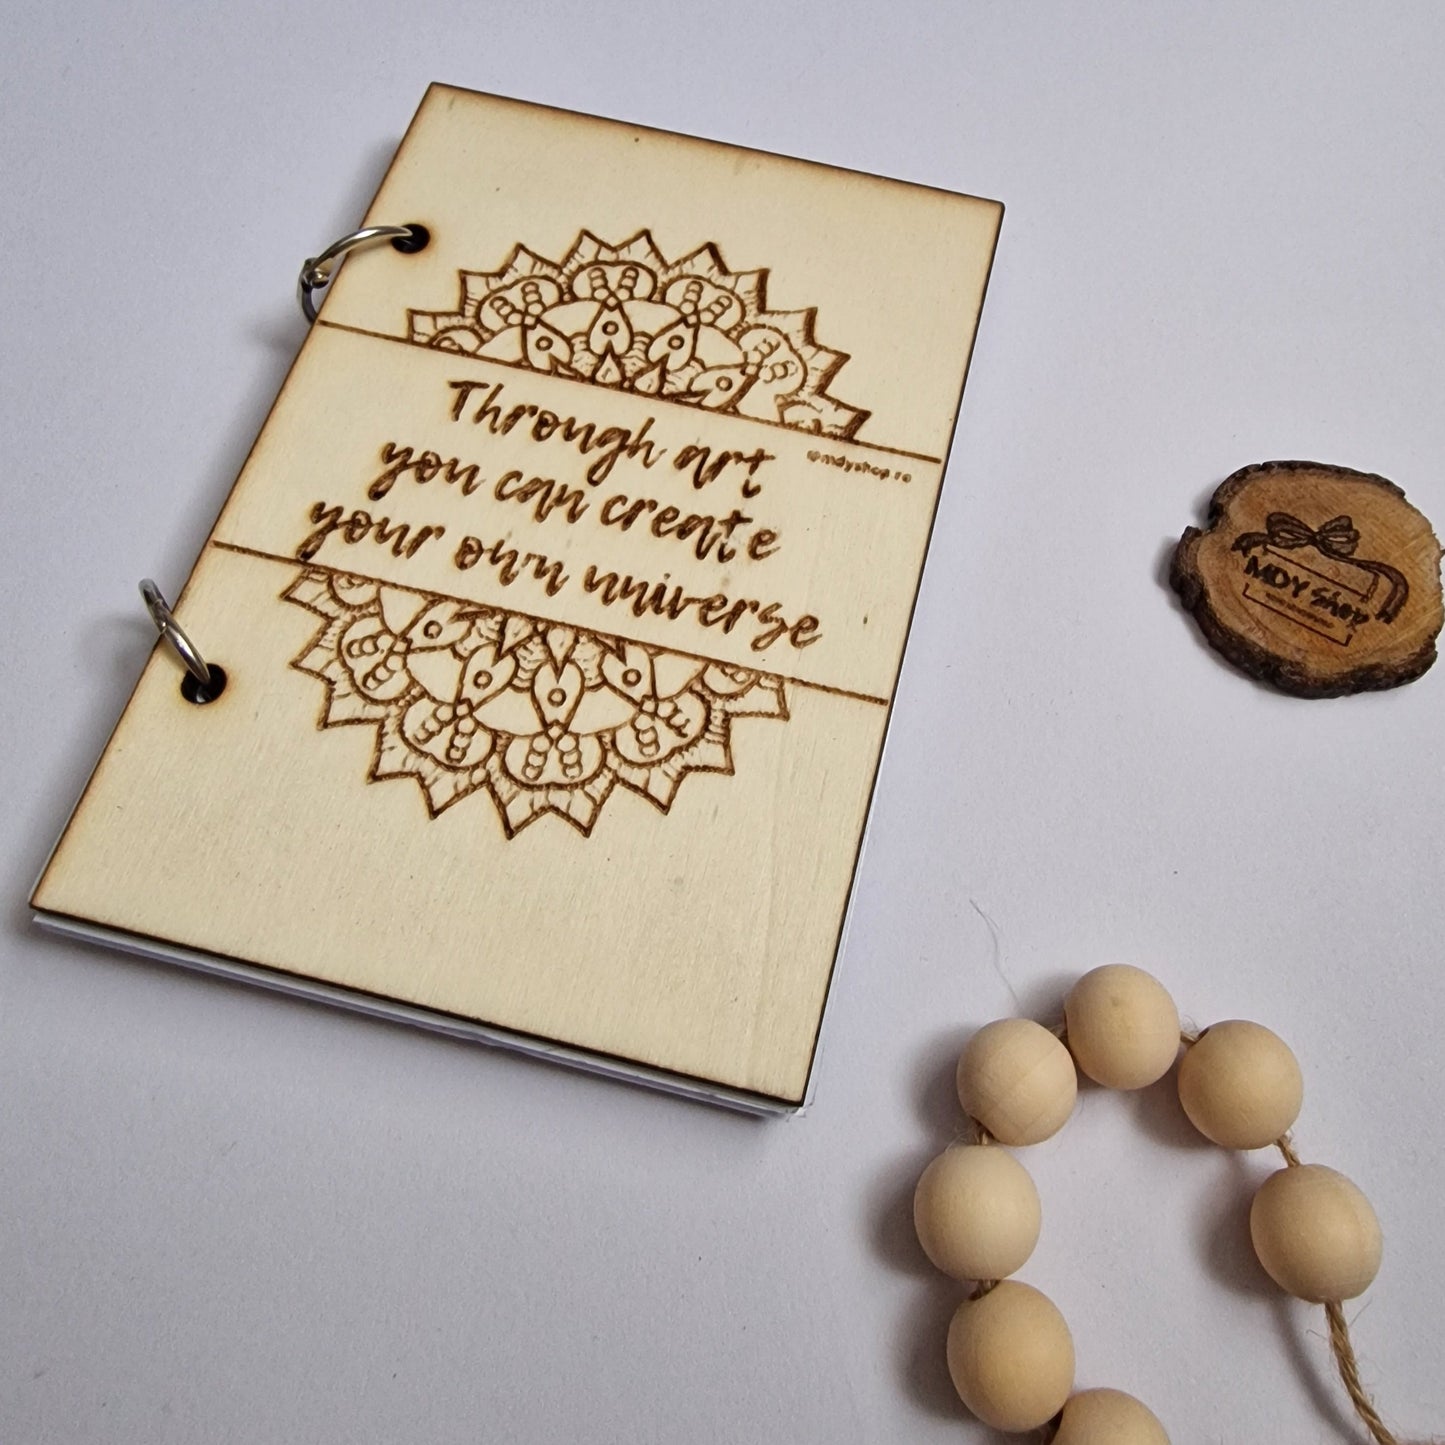 Through art
you can create
your own universe
@mdyshop.ro
MDY Shop